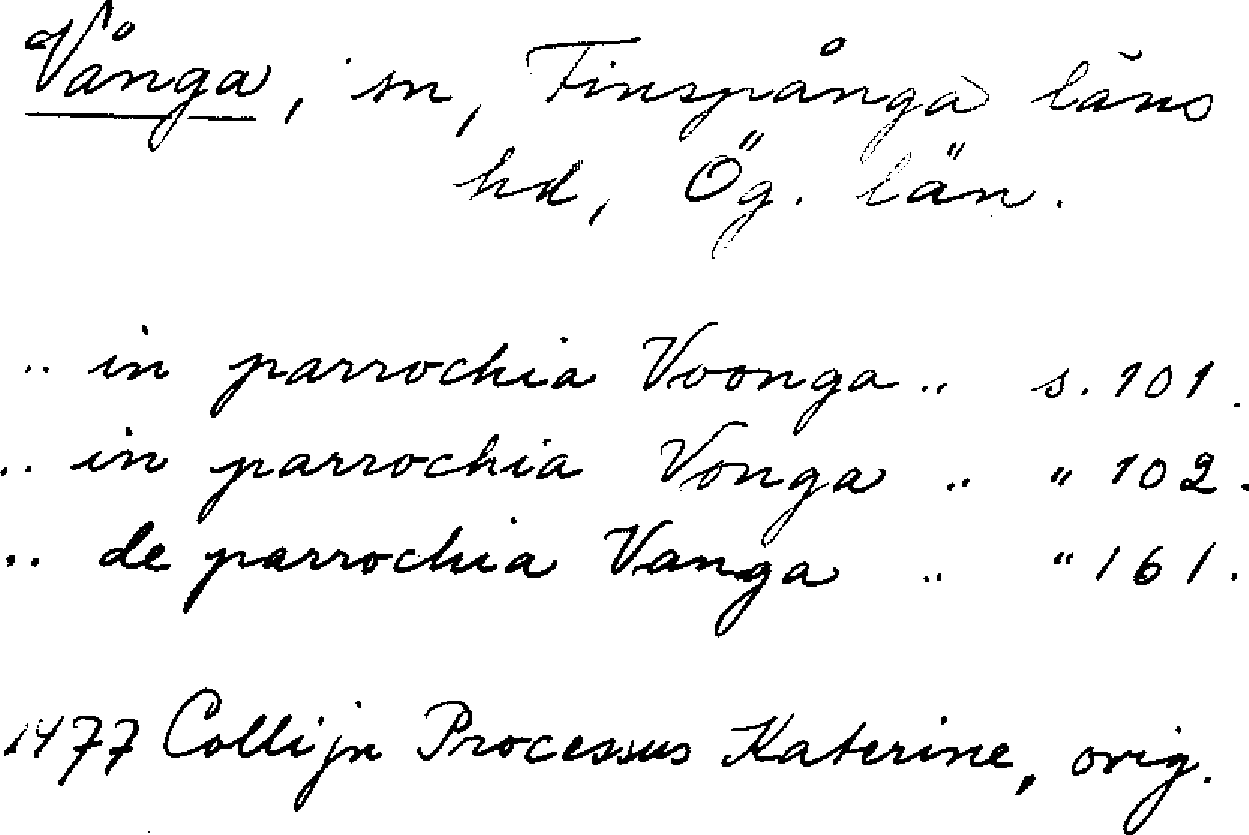 Vånga, sn, Finspånga läns
hd, Ög. län.
.. in parrochia Voonga .. s. 101.
.. in parrochia Vonga .. " 102.
.. de parrochia Vanga .. " 161.
1477 Collijn Processus Katerine, orig.